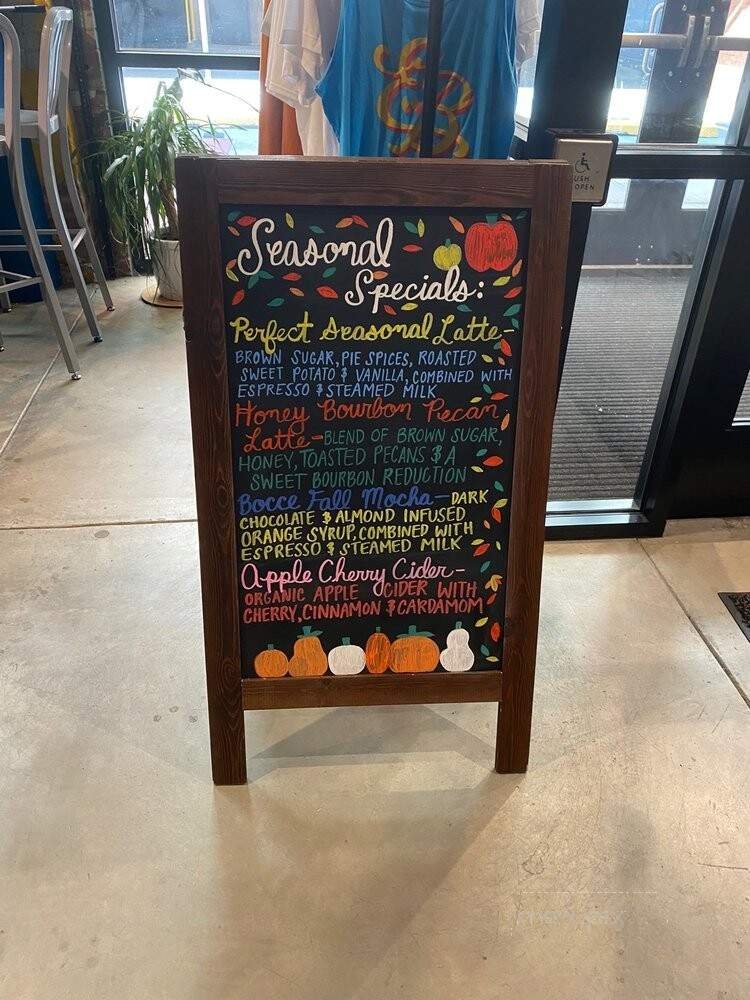 Seasonal
Specials:
Perfect Seasonal Latte-
BROWN SUGAR, PIE SPICES, ROASTED
SWEET POTATO & VANILLA, COMBINED WITH
ESPRESSO & STEAMED MILK
Honey Bourbon Pecan
Latte-BLEND OF BROWN SUGAR,
HONEY, TOASTED PECANS & A
SWEET BOURBON REDUCTION
Bocce Fall Mocha-DARK
CHOCOLATE & ALMOND INFUSED
ORANGE SYRUP, COMBINED WITH
ESPRESSO & STEAMED MILK
Apple Cherry Cider-
ORGANIC APPLE CIDER WITH
CHERRY, CINNAMON & CARDAMOM
OPEN